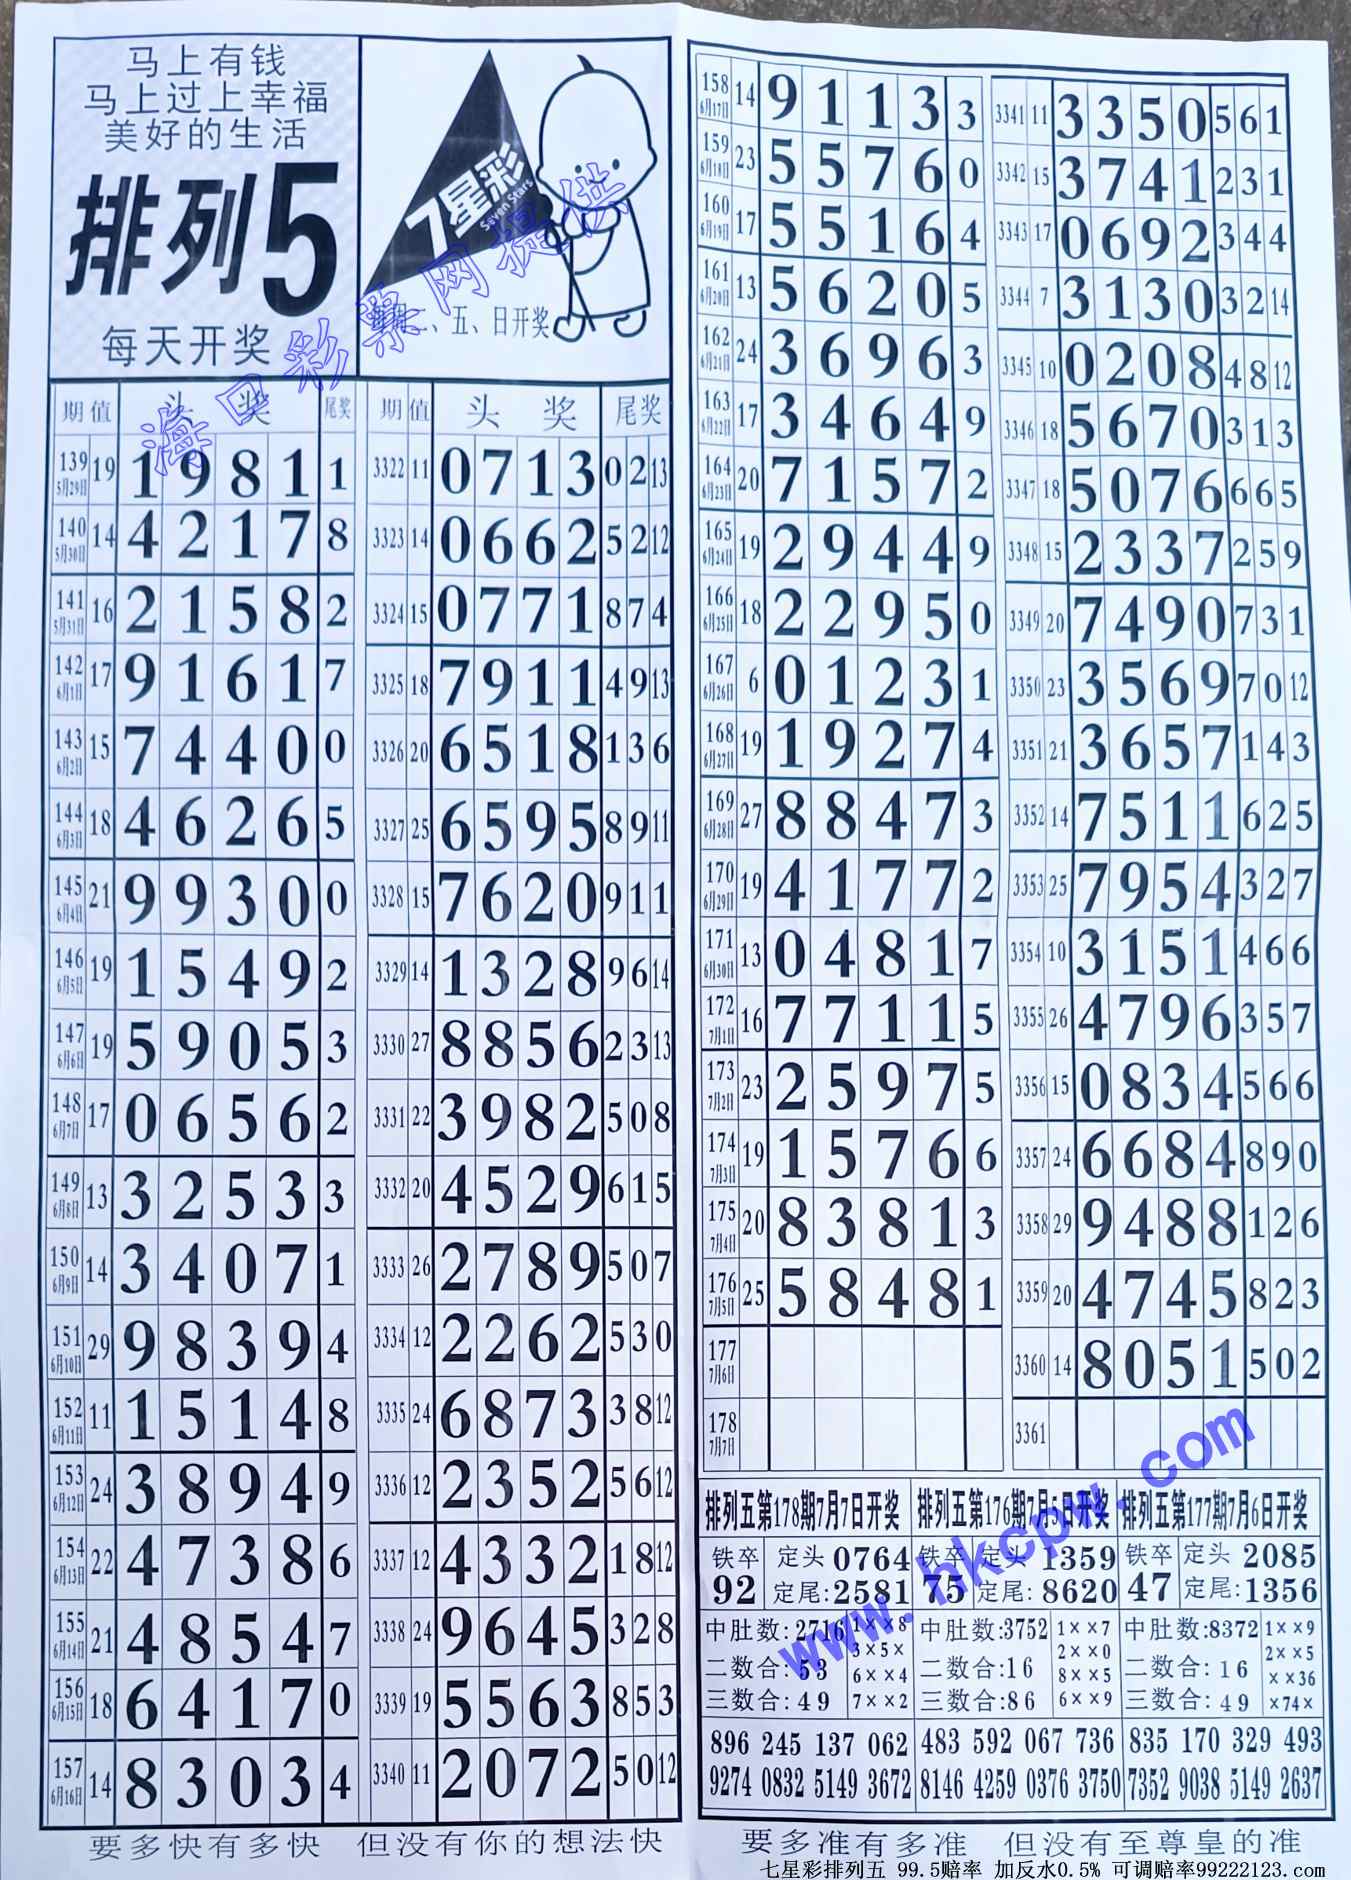 马上有钱
马上过上幸福
美好的生活
排列5
每天开奖
7星彩
Seven Stars
二、五、日开奖
海口彩票网提供
期 值 头 奖 尾奖
139 5月29日 19 1 9 8 1 1
140 5月30日 14 4 2 1 7 8
141 5月31日 16 2 1 5 8 2
142 6月1日 17 9 1 6 1 7
143 6月2日 15 7 4 4 0 0
144 6月3日 18 4 6 2 6 5
145 6月4日 21 9 9 3 0 0
146 6月5日 19 1 5 4 9 2
147 6月6日 19 5 9 0 5 3
148 6月7日 17 0 6 5 6 2
149 6月8日 13 3 2 5 3 3
150 6月9日 14 3 4 0 7 1
151 6月10日 29 9 8 3 9 4
152 6月11日 11 1 5 1 4 8
153 6月12日 24 3 8 9 4 9
154 6月13日 22 4 7 3 8 6
155 6月14日 21 4 8 5 4 7
156 6月15日 18 6 4 1 7 0
157 6月16日 14 8 3 0 3 4
期 值 头 奖 尾奖
3322 11 0 7 1 3 0 2 13
3323 14 0 6 6 2 5 2 12
3324 15 0 7 7 1 8 7 4
3325 18 7 9 1 1 4 9 13
3326 20 6 5 1 8 1 3 6
3327 25 6 5 9 5 8 9 11
3328 15 7 6 2 0 9 1 1
3329 14 1 3 2 8 9 6 14
3330 27 8 8 5 6 2 3 13
3331 22 3 9 8 2 5 0 8
3332 20 4 5 2 9 6 1 5
3333 26 2 7 8 9 5 0 7
3334 12 2 2 6 2 5 3 0
3335 24 6 8 7 3 3 8 12
3336 12 2 3 5 2 5 6 12
3337 12 4 3 3 2 1 8 12
3338 24 9 6 4 5 3 2 8
3339 19 5 5 6 3 8 5 3
3340 11 2 0 7 2 5 0 12
要多快有多快 但没有你的想法快
158 6月17日 14 9 1 1 3 3
159 6月18日 23 5 5 7 6 0
160 6月19日 17 5 5 1 6 4
161 6月20日 13 5 6 2 0 5
162 6月21日 24 3 6 9 6 3
163 6月22日 17 3 4 6 4 9
164 6月23日 20 7 1 5 7 2
165 6月24日 19 2 9 4 4 9
166 6月25日 18 2 2 9 5 0
167 6月26日 6 0 1 2 3 1
168 6月27日 19 1 9 2 7 4
169 6月28日 27 8 8 4 7 3
170 6月29日 19 4 1 7 7 2
171 6月30日 13 0 4 8 1 7
172 7月1日 16 7 7 1 1 5
173 7月2日 23 2 5 9 7 5
174 7月3日 19 1 5 7 6 6
175 7月4日 20 8 3 8 1 3
176 7月5日 25 5 8 4 8 1
177 7月6日
178 7月7日
3341 11 3 3 5 0 5 6 1
3342 15 3 7 4 1 2 3 1
3343 17 0 6 9 2 3 4 4
3344 7 3 1 3 0 3 2 14
3345 10 0 2 0 8 4 8 12
3346 18 5 6 7 0 3 1 3
3347 18 5 0 7 6 6 6 5
3348 15 2 3 3 7 2 5 9
3349 20 7 4 9 0 7 3 1
3350 23 3 5 6 9 7 0 12
3351 21 3 6 5 7 1 4 3
3352 14 7 5 1 1 6 2 5
3353 25 7 9 5 4 3 2 7
3354 10 3 1 5 1 4 6 6
3355 26 4 7 9 6 3 5 7
3356 15 0 8 3 4 5 6 6
3357 24 6 6 8 4 8 9 0
3358 29 9 4 8 8 1 2 6
3359 20 4 7 4 5 8 2 3
3360 14 8 0 5 1 5 0 2
3361
排列五第178期7月7日开奖
铁卒 定头 0764
92 定尾:2581
中肚数:2716
二数合:53
三数合:49
1××8
3×5×
6××4
7××2
896 245 137 062
9274 0832 5149 3672
排列五第176期7月5日开奖
铁卒 定头 1359
75 定尾:8620
中肚数:3752
二数合:16
三数合:86
1××7
2××0
8××5
6××9
483 592 067 736
8146 4259 0376 3750
排列五第177期7月6日开奖
铁卒 定头 2085
47 定尾:1356
中肚数:8372
二数合:16
三数合:49
1××9
2××5
××36
×74×
835 170 329 493
7352 9038 5149 2637
www.hkcpw.com
要多准有多准 但没有至尊皇的准
七星彩排列五 99.5赔率 加反水0.5% 可调赔率99222123.com